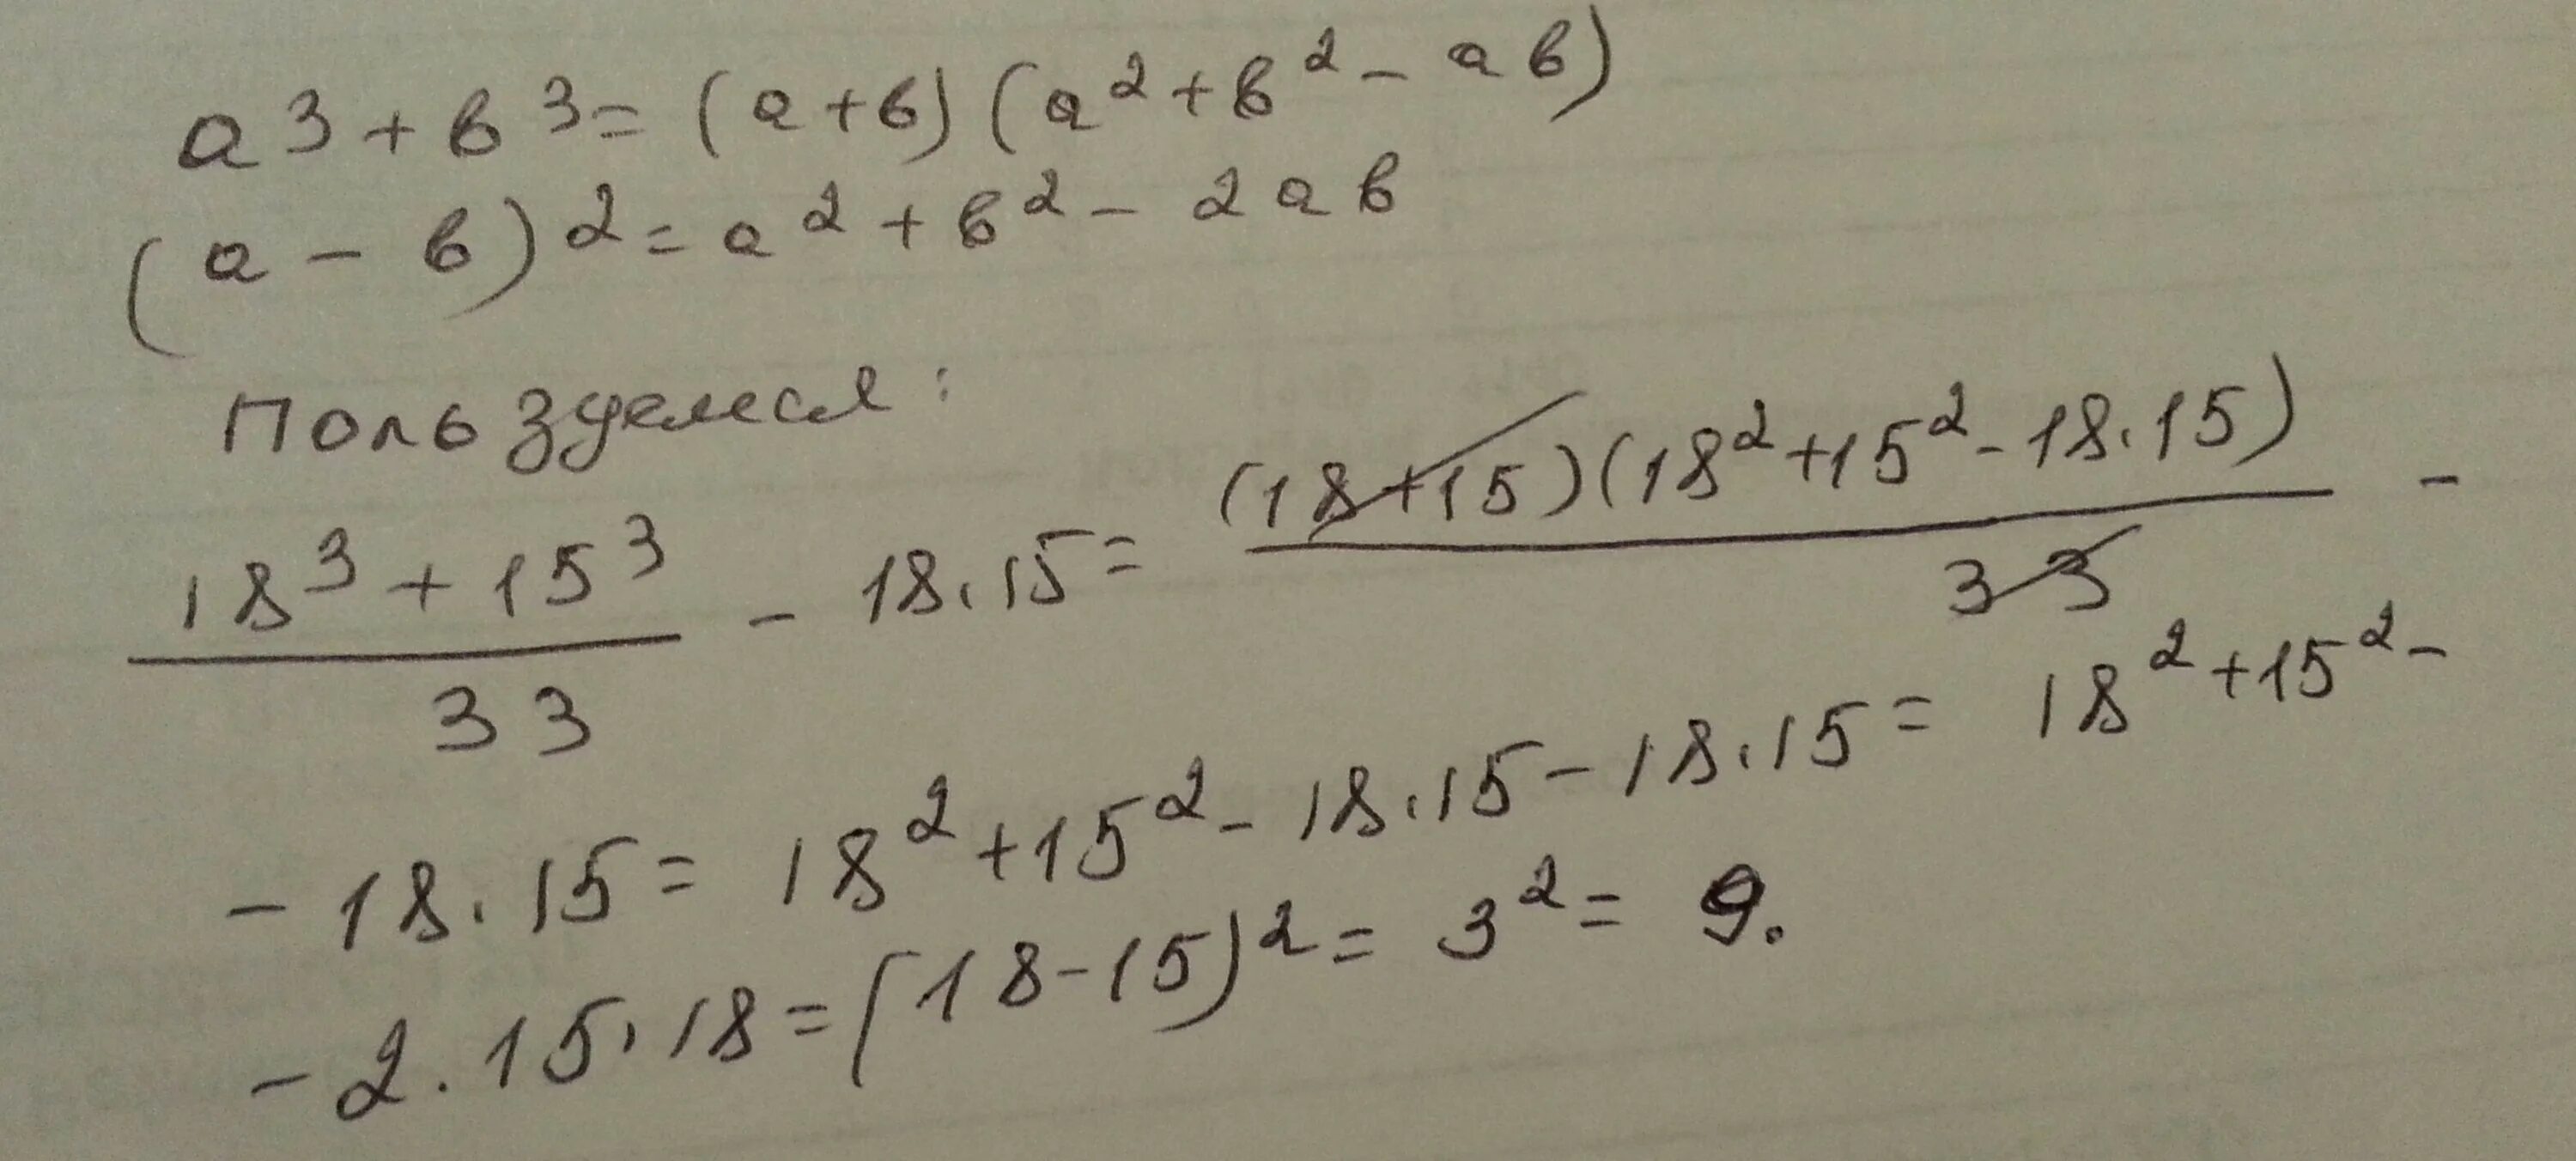 а³ + в³ = (а + в) (а² + в² - ав)
(а - в)² = а² + в² - 2ав
Пользуемся:
(18³ + 15³)/33 - 18·15 = ((18+15)(18² + 15² - 18·15))/33 -
- 18·15 = 18² + 15² - 18·15 - 18·15 = 18² + 15² -
- 2·15·18 = (18-15)² = 3² = 9.